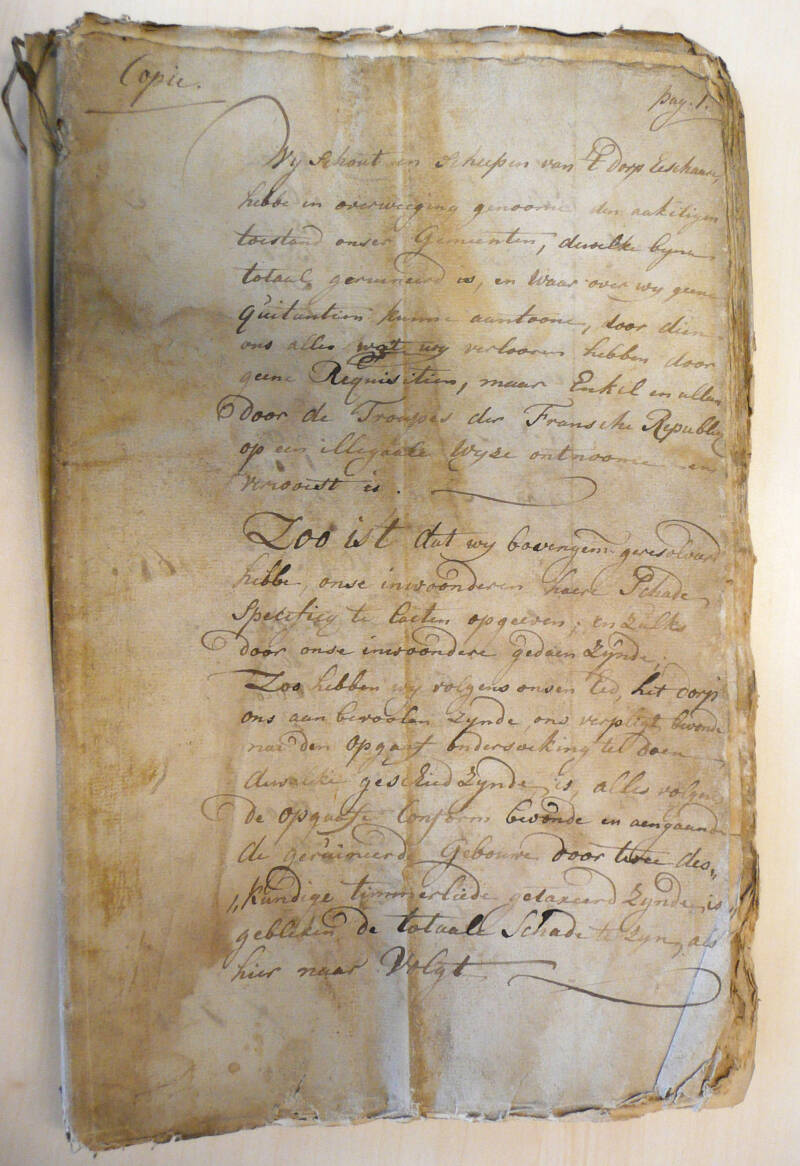 Copie.
pag. 1.
Wy Schout en Scheepen van 't dorp
hebbe in overweeging genoome den aakeligen
toestand onser Gemeenten, dewelke byna
totaal geruineerd is, en waar over wy geene
Quitantien kunne aantoone, door dien
ons alles wat wy verlooren hebben door
geene Requisitien, maar Enkel en allen
door de Troupes der Fransche Republiq
op een illegaale wyze ontnoome en
verwoest is.
Zoo ist dat wy bovengem: geresolveert
hebbe, onse inwoonderen haere Schade
Specificq te laeten opgeeven; en zulks
door onse inwoondere gedaen zynde;
Zoo hebben wy volgens onsen Eed, het dorp
ons aan bevoolen zynde, ons verpligt bevonde
nae den opgaaf ondersoeking te doen
dewelke geschied zynde is, alles volgens
de opgaafe Conform bevonde en aengaande
de geruineerde Gebouwe door twee des„
„kundige timmerliede getaxeerd zynde, is
gebleken de totaale Schade te zyn, als
hier naar Volgt